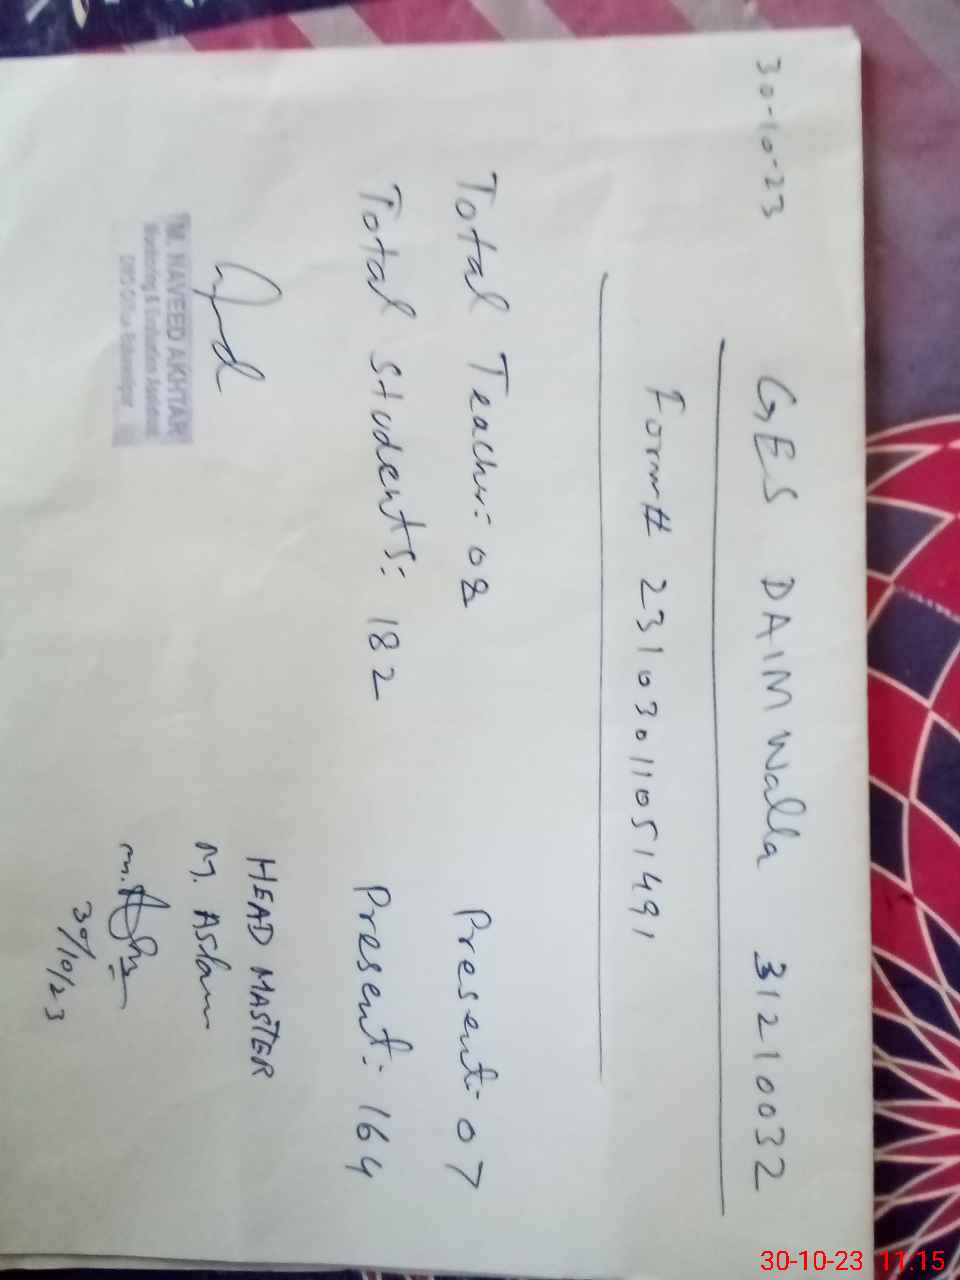 30-10-23
GES DAIM Walla 31210032
Form# 23103011051491
Total Teacher: 08 Present: 07
Total students: 182 Present: 164
HEAD MASTER
M. Aslam
30/10/23
M. NAVEED AKHTAR
Monitoring & Evaluation Assistant
30-10-23 11:15